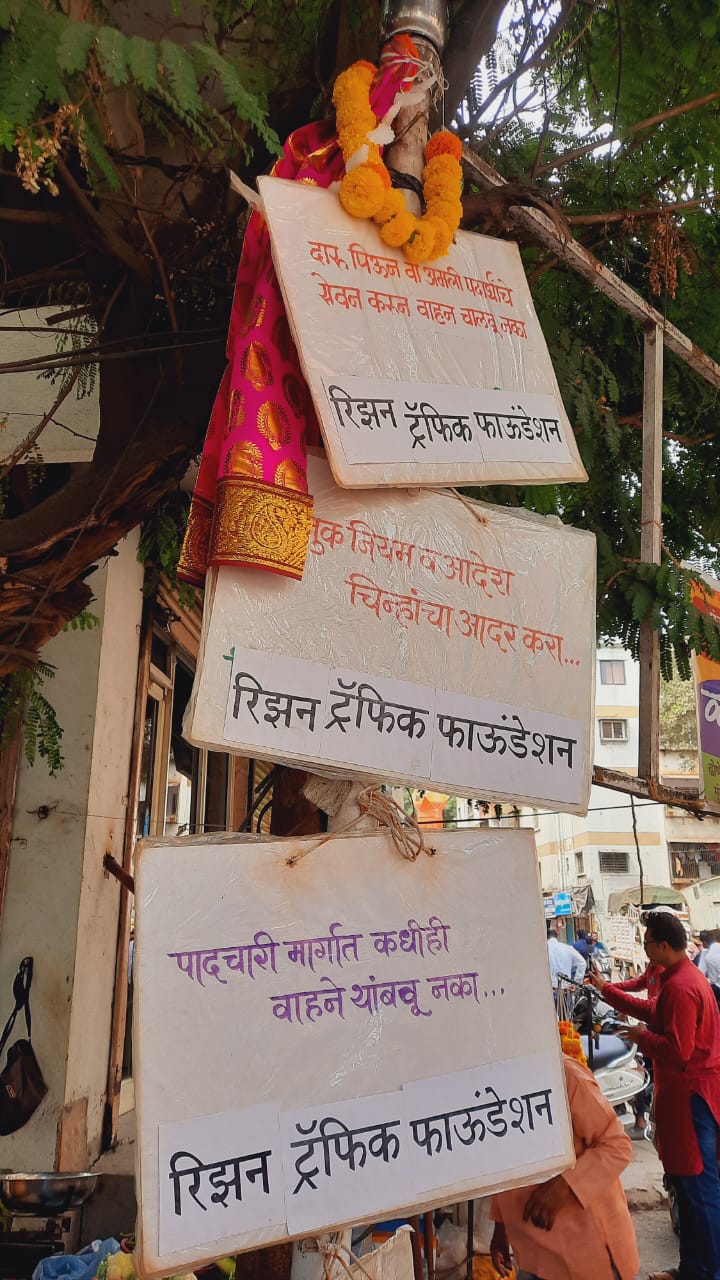 दारू पिऊन वा अमली पदार्थाचे
सेवन करून वाहन चालवू नका
रिझन ट्रॅफिक फाऊंडेशन
नियम व आदेश
चिन्हांचा आदर करा...
रिझन ट्रॅफिक फाऊंडेशन
पादचारी मार्गात कधीही
वाहने थांबवू नका...
रिझन ट्रॅफिक फाऊंडेशन